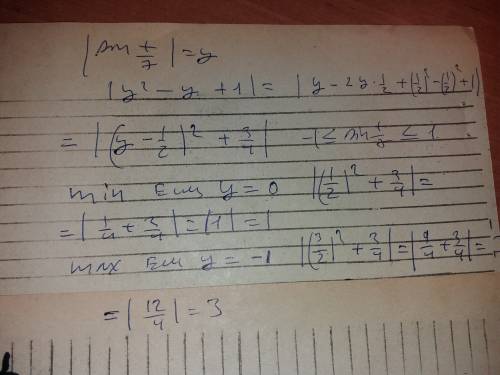 |sin t/7| = y
|y² - y + 1| = |y - 2y · 1/2 + (1/2)² - (1/2)² + 1|
= |(y - 1/2)² + 3/4| -1 ≤ sin t/7 ≤ 1
min если y = 0 |(1/2)² + 3/4| =
= |1/4 + 3/4| = |1| = 1
max если y = -1 |(3/2)² + 3/4| = |9/4 + 3/4| =
= |12/4| = 3